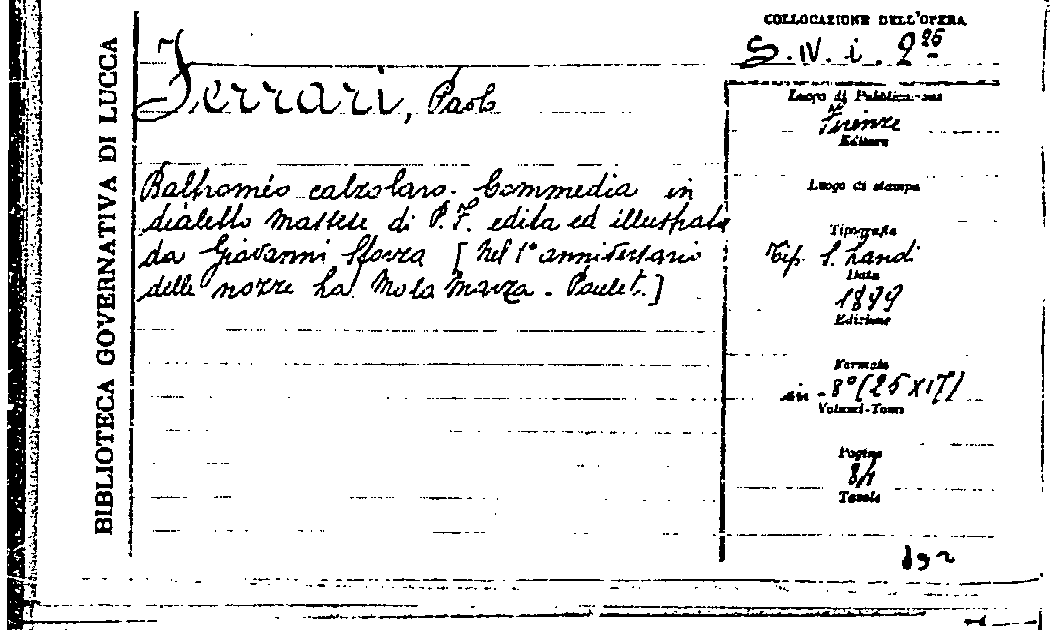 BIBLIOTECA GOVERNATIVA DI LUCCA
COLLOCAZIONE DELL'OPERA
S. IV. i. 2 25
Ferrari, Paolo
Baltromèo calzolaro. Commedia in
dialetto massese di P. F. edita ed illustrata
da Giovanni Sforza [Nel 1° anniversario
delle nozze La Mola Marza - Paulet.]
Luogo di Pubblicazione
Firenze
Editore
Luogo di stampa
Tipografia
Tip. S. Landi
Data
1899
Edizione
Formato
in - 8° (25 x 17)
Volumi-Tomi
Pagine
Tavole